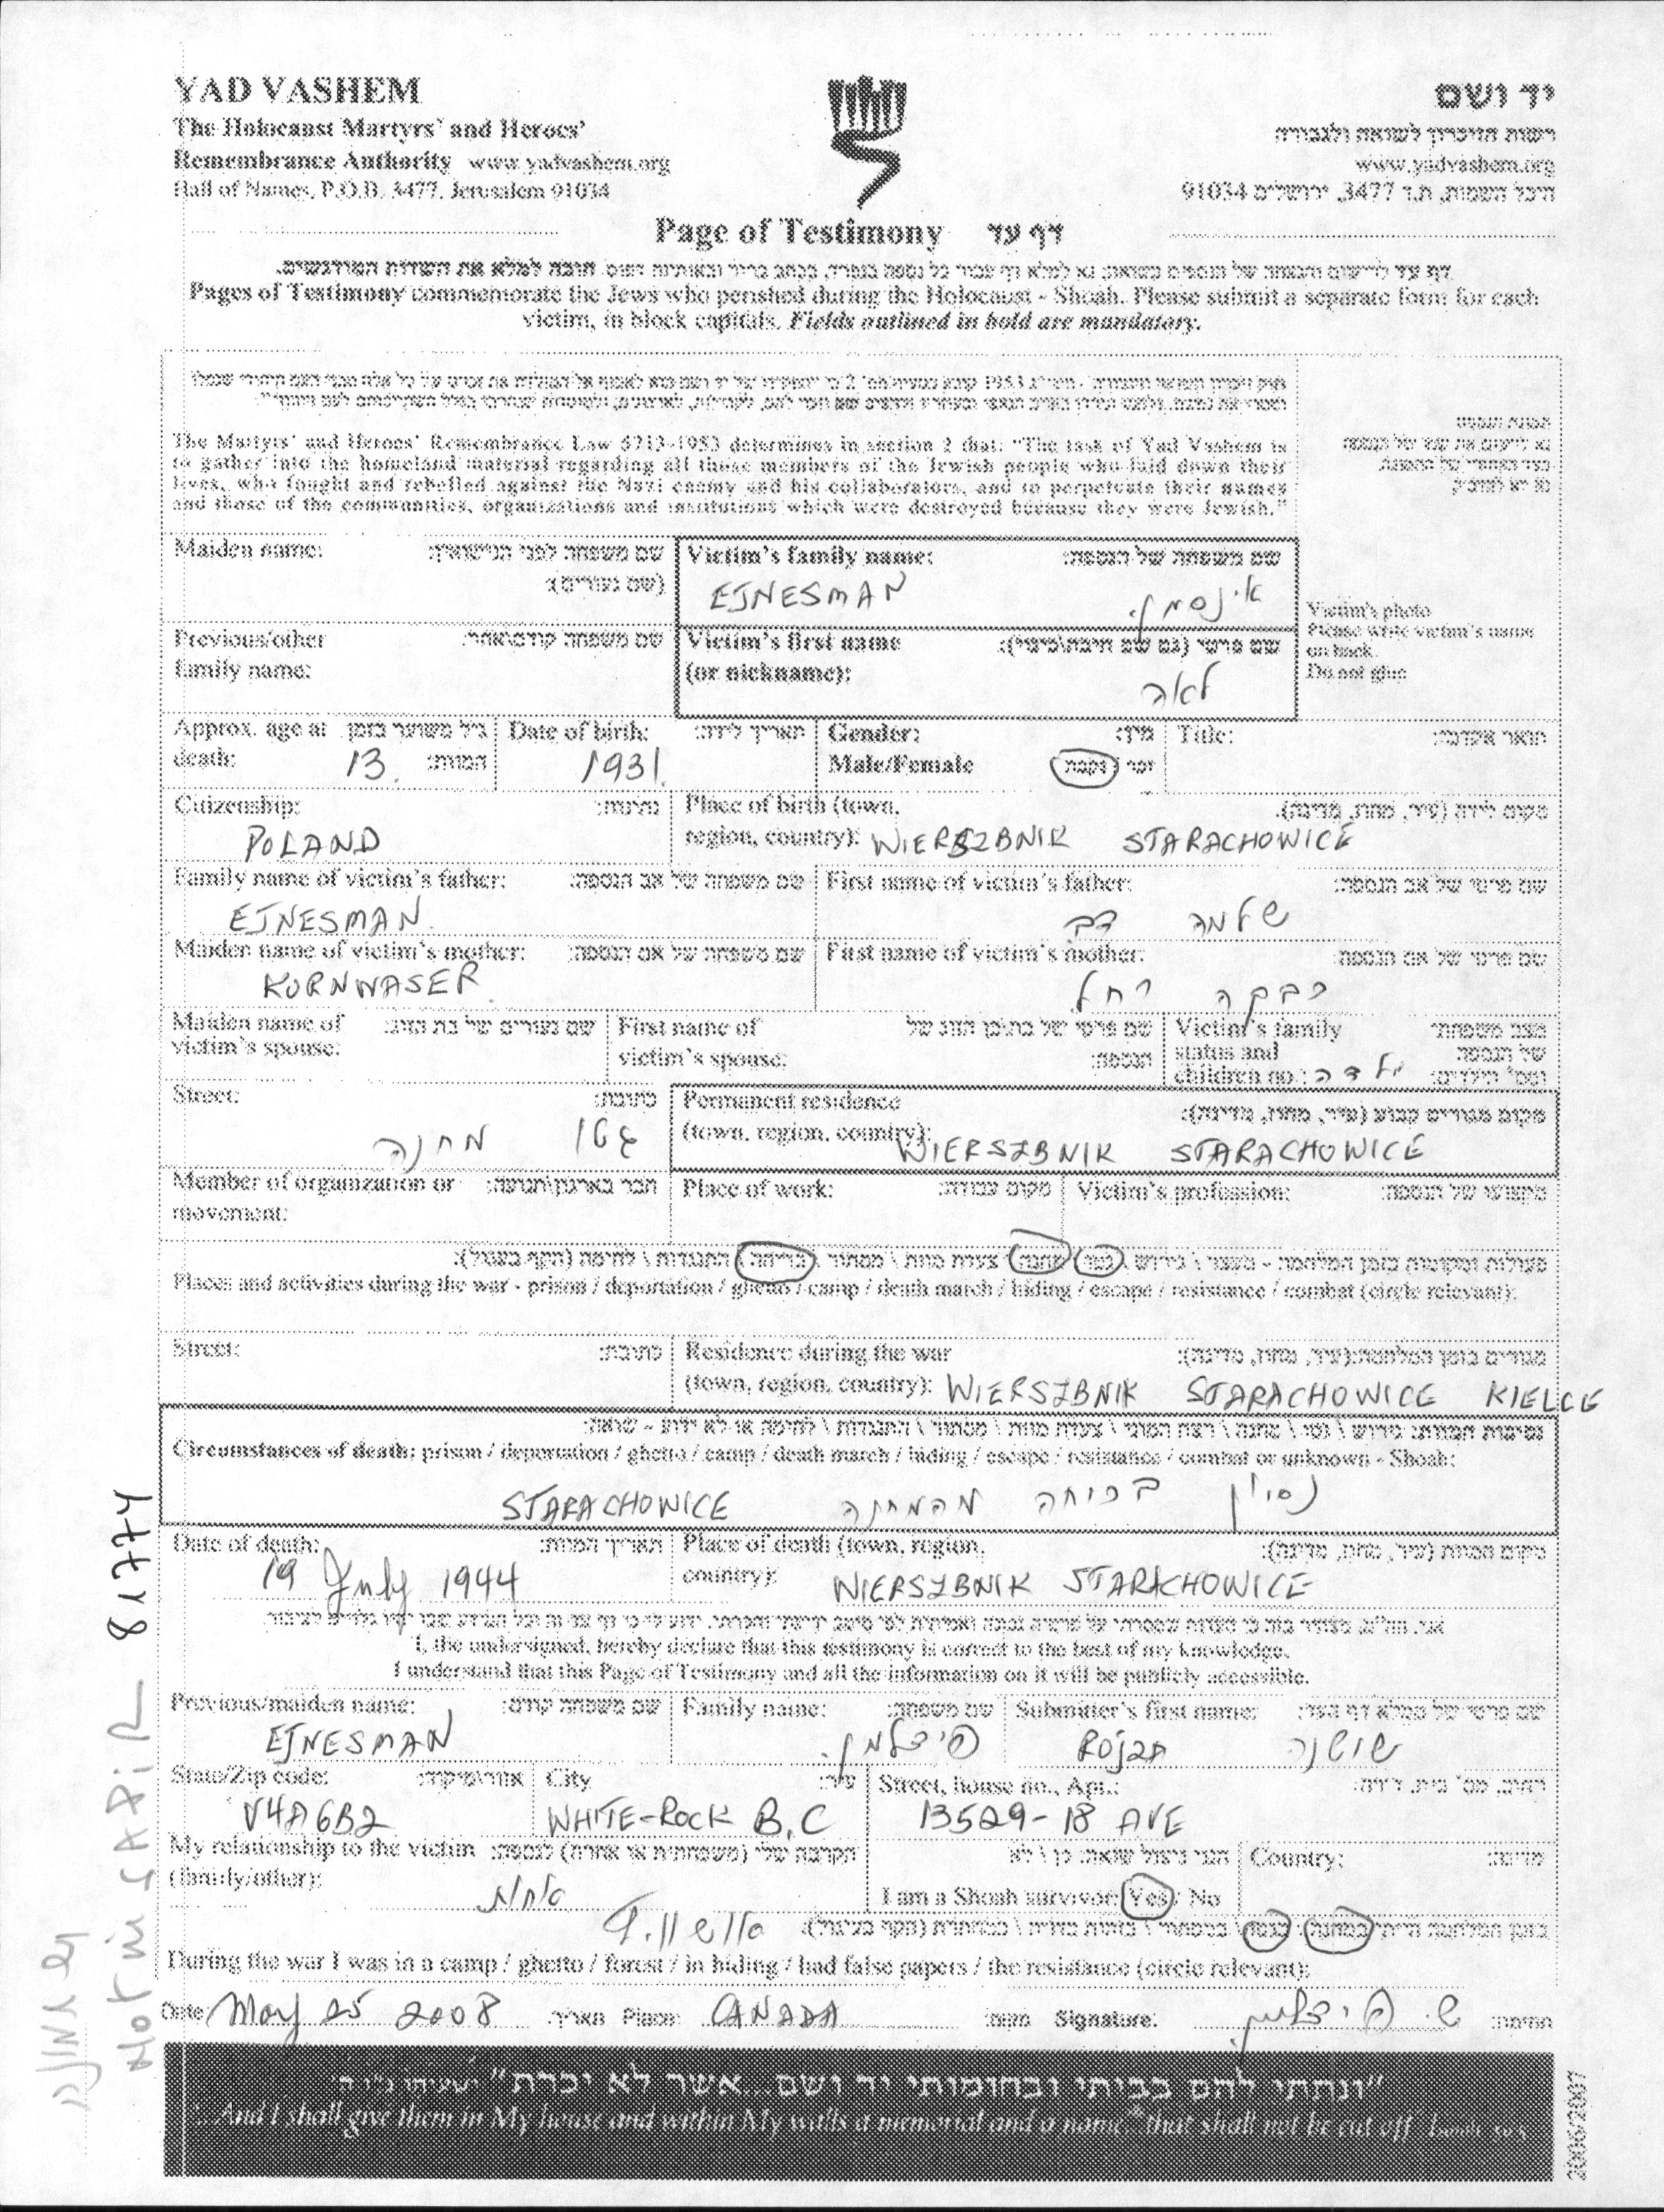 YAD VASHEM
יד ושם
The Holocaust Martyrs' and Heroes'
רשות הזיכרון לשואה ולגבורה
Remembrance Authority www.yadvashem.org
www.yadvashem.org
Hall of Names, P.O.B. 3477, Jerusalem 91034
היכל השמות, ת.ד 3477, ירושלים 91034
Page of Testimony דף עד
דף עד לרישום והנצחה של הנספים בשואה; נא למלא דף עבור כל נספה בנפרד, בכתב ברור ובאותיות דפוס. חובה למלא את השדות המודגשים.
Pages of Testimony commemorate the Jews who perished during the Holocaust - Shoah. Please submit a separate form for each
victim, in block capitals. Fields outlined in bold are mandatory.
The Martyrs' and Heroes' Remembrance Law 5713-1953 determines in section 2 that: "The task of Yad Vashem is
to gather into the homeland material regarding all those members of the Jewish people who laid down their
lives, who fought and rebelled against the Nazi enemy and his collaborators, and to perpetuate their names
and those of the communities, organizations and institutions which were destroyed because they were Jewish."
Victim's photo
Please write victim's name
on back.
Do not glue
Maiden name: שם משפחה לפני הנישואין:
(שם נעורים):
Victim's family name: שם משפחה של הנספה:
EJNESMAN אינסמן
Previous/other שם משפחה קודם\אחר:
family name:
Victim's first name שם פרטי (גם שם חיבה\כינוי):
(or nickname):
לאה
Approx. age at גיל משוער בזמן
death: 13 המוות:
Date of birth: תאריך לידה:
1931
Gender: מין:
Male/Female זכר נקבה
Title: תואר אקדמי:
Citizenship: נתינות:
POLAND
Place of birth (town, מקום לידה (עיר, מחוז, מדינה):
region, country): WIERSZBNIK STARACHOWICE
Family name of victim's father: שם משפחה של אב הנספה:
EJNESMAN
First name of victim's father: שם פרטי של אב הנספה:
שלמה דב
Maiden name of victim's mother: שם משפחה של אם הנספה:
KORNWASER
First name of victim's mother: שם פרטי של אם הנספה:
רבקה רחל
Maiden name of שם נעורים של בת הזוג:
victim's spouse:
First name of שם פרטי של בת\בן הזוג של
victim's spouse: הנספה:
Victim's family מצב משפחתי
status and של הנספה
children no.: ילדה ומס' הילדים:
Street: כתובת:
גטו מחנה
Permanent residence מקום מגורים קבוע (עיר, מחוז, מדינה):
(town, region, country): WIERSZBNIK STARACHOWICE
Member of organization or חבר בארגון\תנועה:
movement:
Place of work: מקום עבודה:
Victim's profession: מקצועו של הנספה:
פעולות ומקומות בזמן המלחמה - מעצר \ גירוש \ גטו \ מחנה \ צעדת מוות \ מסתור \ בריחה \ התנגדות \ לחימה (הקף בעיגול):
Places and activities during the war - prison / deportation / ghetto / camp / death march / hiding / escape / resistance / combat (circle relevant):
Street: כתובת:
Residence during the war מגורים בזמן המלחמה (עיר, מחוז, מדינה):
(town, region, country): WIERSZBNIK STARACHOWICE KIELCE
נסיבות המוות: גירוש \ גטו \ מחנה \ רצח המוני \ צעדת מוות \ מסתור \ התנגדות \ לחימה או לא ידוע - שואה:
Circumstances of death: prison / deportation / ghetto / camp / death march / hiding / escape / resistance / combat or unknown - Shoah:
נסיון בריחה מהמחנה STARACHOWICE
Date of death: תאריך המוות:
19 July 1944
Place of death (town, region, מקום המוות (עיר, מחוז, מדינה):
country): WIERSZBNIK STARACHOWICE
I, the undersigned, hereby declare that this testimony is correct to the best of my knowledge.
I understand that this Page of Testimony and all the information on it will be publicly accessible.
Previous/maiden name: שם משפחה קודם:
EJNESMAN
Family name: שם משפחה:
פיצלמן
Submitter's first name: שם פרטי של ממלא דף העד:
RÓJZA שושנה
State/Zip code: אזור/מיקוד:
V4A6B2
City עיר:
WHITE-ROCK B.C
Street, house no., Apt.: רחוב, מס' בית, דירה:
13529-18 AVE
My relationship to the victim הקרבה שלי (משפחתית או אחרת) לנספה:
(family/other): אחות
הנני ניצול שואה: כן \ לא
I am a Shoah survivor: Yes / No
Country: מדינה:
During the war I was in a camp / ghetto / forest / in hiding / had false papers / the resistance (circle relevant):
Date: May 25 2008 תאריך: Place: CANADA מקום: Signature: ש. פיצלמן חתימה:
"ונתתי להם בביתי ובחומותי יד ושם ...אשר לא יכרת" ישעיהו נ"ו ה'
"...And I shall give them in My house and within My walls a memorial and a name...that shall not be cut off" Isaiah 56:5
2006/2007
Not in SAPIR 81774